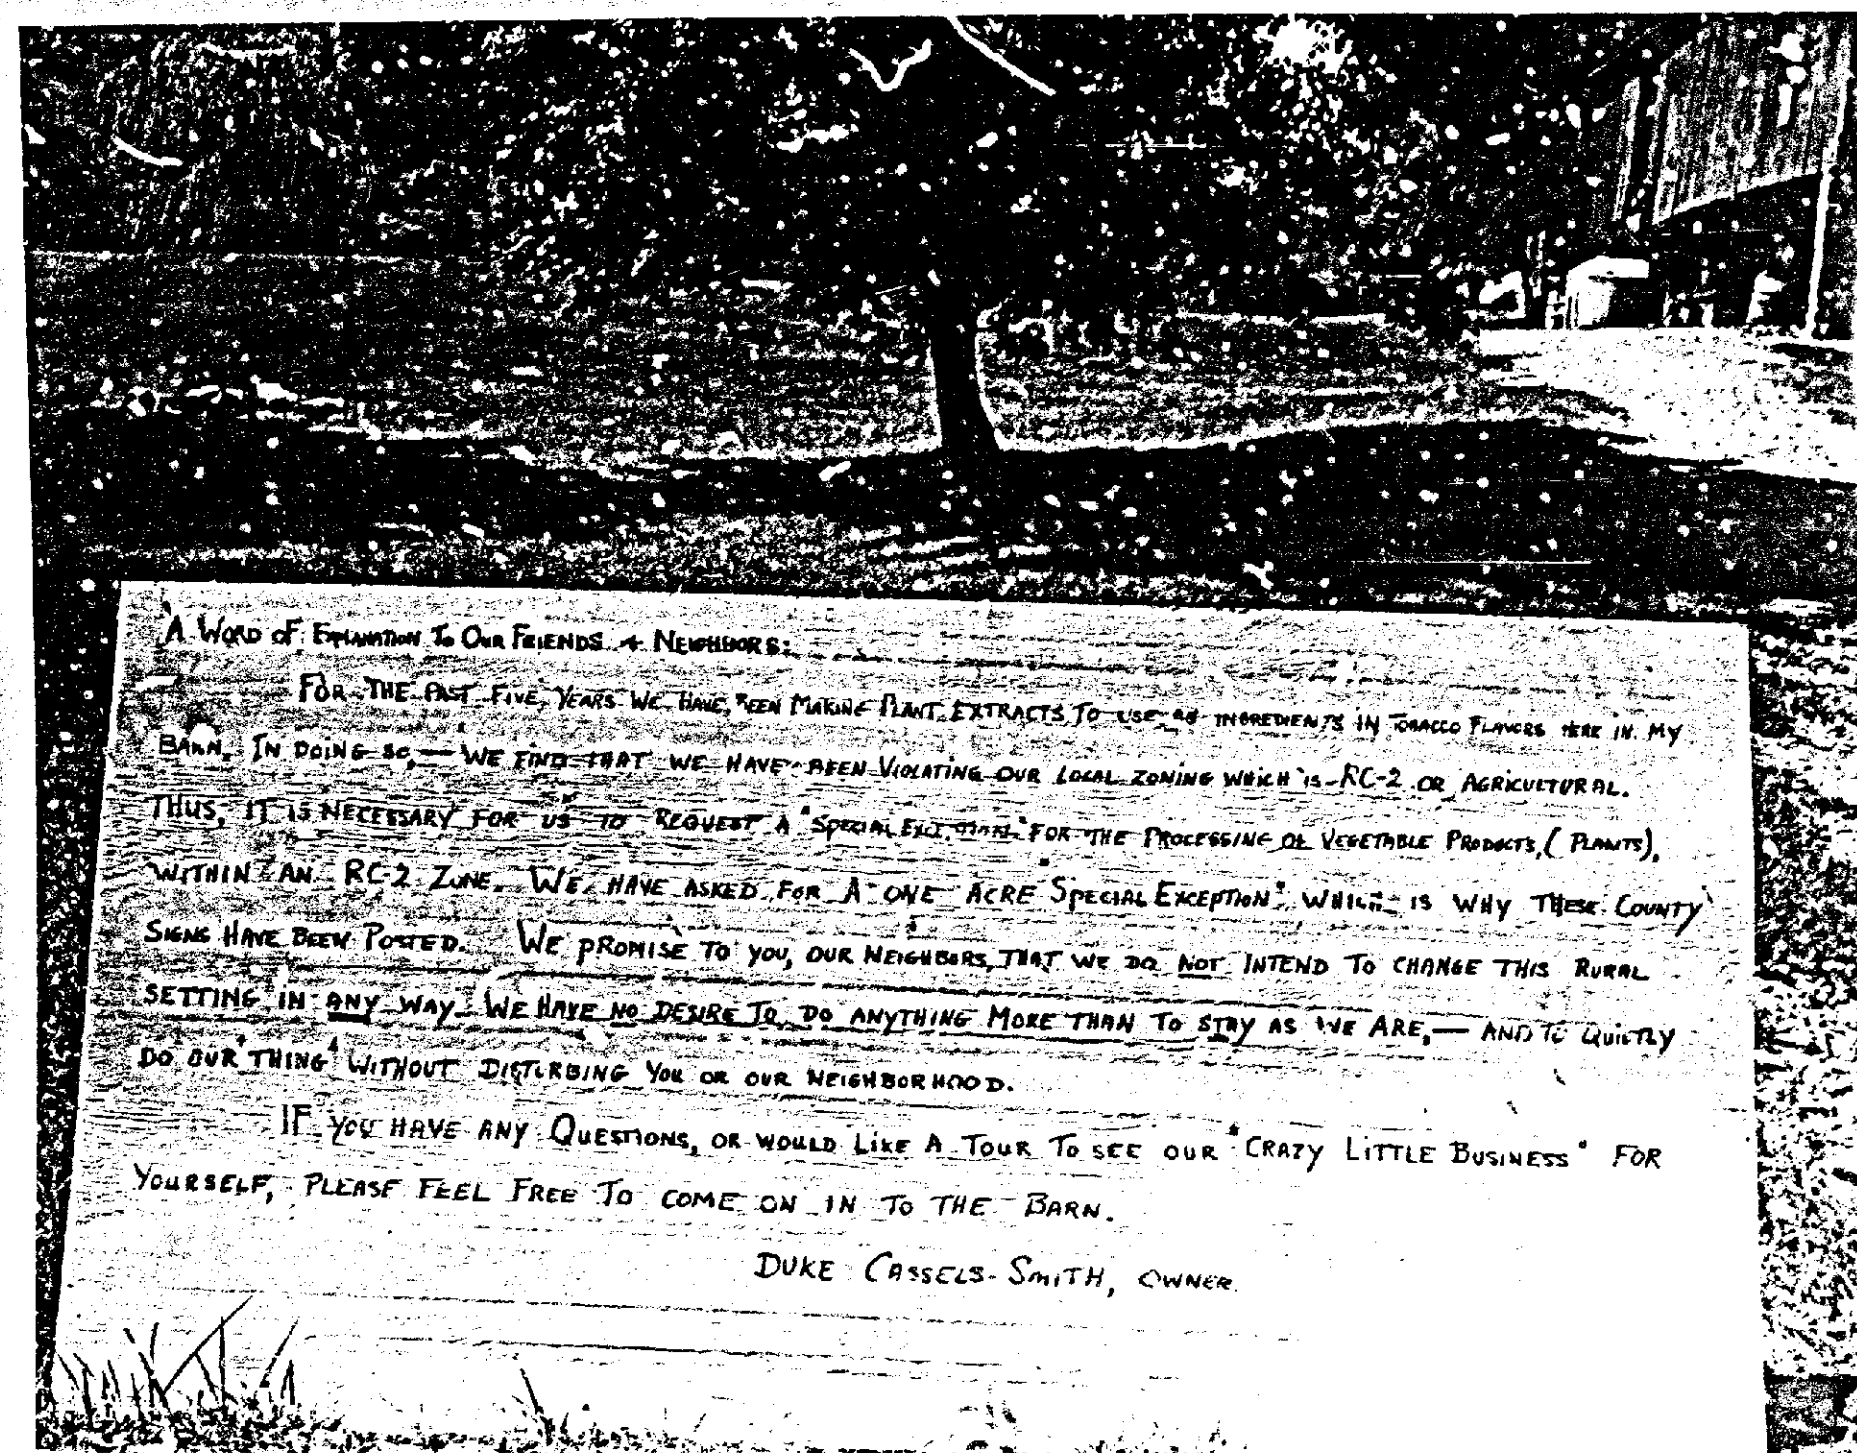 A WORD OF EXPLANATION TO OUR FRIENDS + NEIGHBORS:
FOR THE PAST FIVE YEARS WE HAVE BEEN MAKING PLANT EXTRACTS TO USE AS INGREDIENTS IN TOBACCO FLAVORS HERE IN MY
BARN. IN DOING SO, — WE FIND THAT WE HAVE BEEN VIOLATING OUR LOCAL ZONING WHICH IS RC-2 OR AGRICULTURAL.
THUS, IT IS NECESSARY FOR US TO REQUEST A "SPECIAL EXCEPTION" FOR THE PROCESSING OF VEGETABLE PRODUCTS, (PLANTS),
WITHIN AN RC-2 ZONE. WE HAVE ASKED FOR A ONE ACRE "SPECIAL EXCEPTION" WHICH IS WHY THESE COUNTY
SIGNS HAVE BEEN POSTED. WE PROMISE TO YOU, OUR NEIGHBORS, THAT WE DO NOT INTEND TO CHANGE THIS RURAL
SETTING IN ANY WAY. WE HAVE NO DESIRE TO DO ANYTHING MORE THAN TO STAY AS WE ARE, — AND TO QUIETLY
DO OUR "THING" WITHOUT DISTURBING YOU OR OUR NEIGHBORHOOD.
IF YOU HAVE ANY QUESTIONS, OR WOULD LIKE A TOUR TO SEE OUR "CRAZY LITTLE BUSINESS" FOR
YOURSELF, PLEASE FEEL FREE TO COME ON IN TO THE BARN.
DUKE CASSELS-SMITH, OWNER